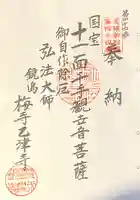 奉納
国宝
十一面千手観世音菩薩
御自作除厄
弘法大師
鏡島
梅寺乙津寺